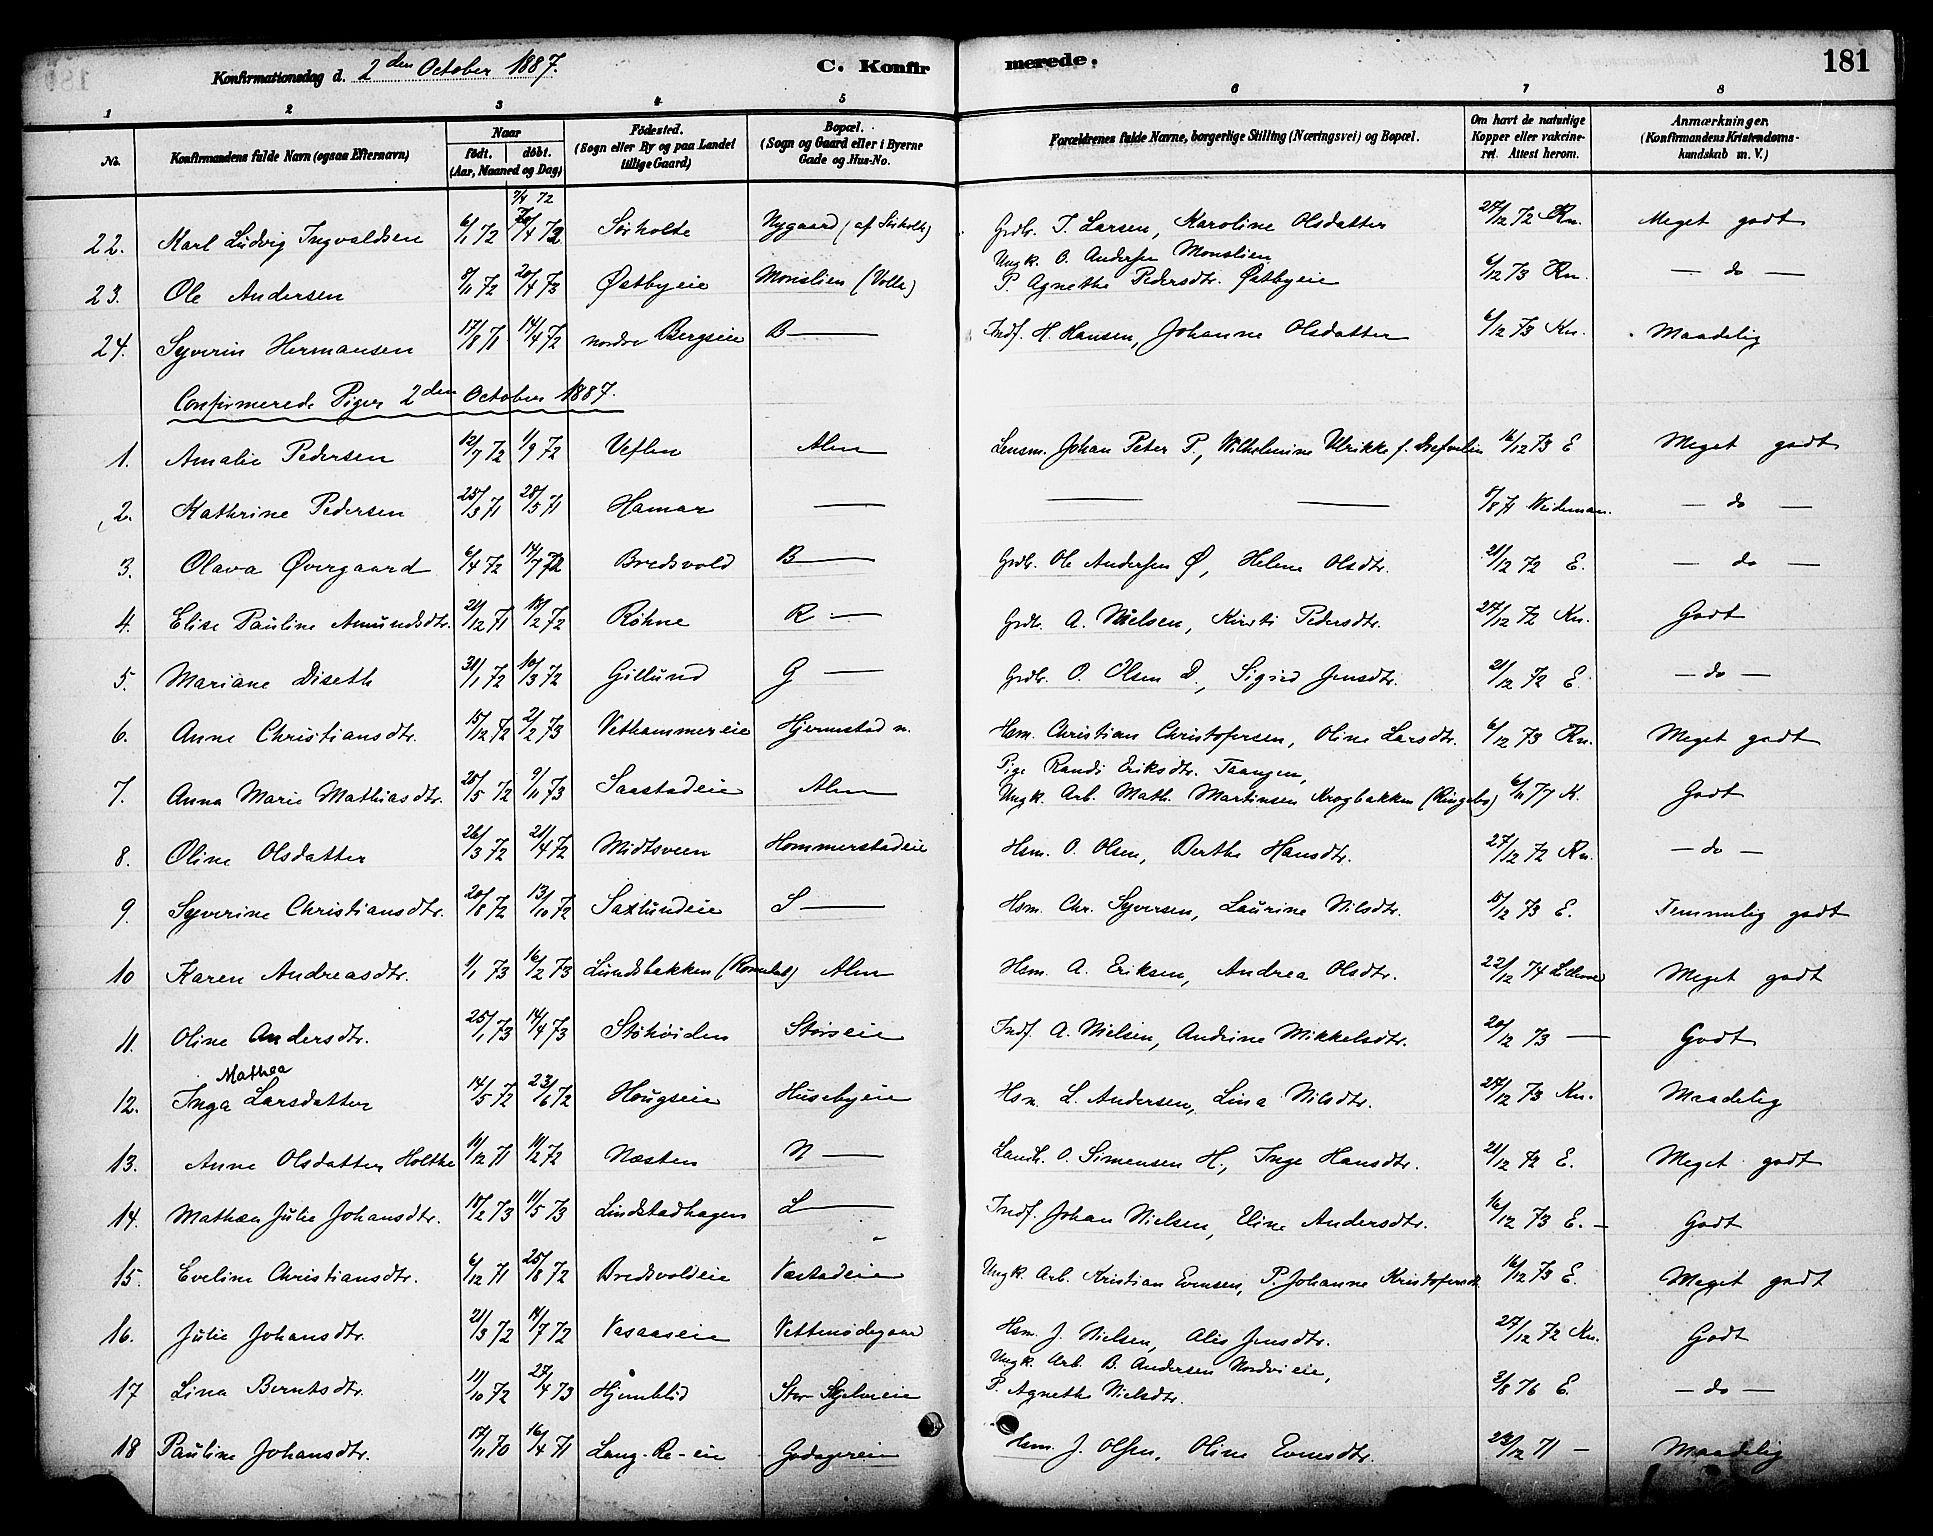 181
Konfirmationsdag d. 2den October 1887. C. Konfirmerede.
1 2 3 4 5 6 7 8
No. Konfirmandens fulde Navn (ogsaa Efternavn) Naar født. døbt. (Aar, Maaned og Dag) Fødested. (Sogn eller By og paa Landet tillige Gaard) Bopæl. (Sogn og Gaard eller i Byerne Gade og Hus-No. Forældrenes fulde Navne, borgerlige Stilling (Næringsvei) og Bopæl. Om havt de naturlige Kopper eller vakcineret. Attest herom. Anmærkninger. (Konfirmandens Kristendomskundskab m. V.)
7/4 72
22. Karl Ludvig Ingvaldsen 6/1 72 Sørholte Nygaard (af Sørholte) Grdbr. I. Larsen, Karoline Olsdatter 27/12 72 Kn. Meget godt
Ungk. O. Andersen Monslien
23. Ole Andersen 8/11 72 20/4 73 Østbyeie Monslien (Volla) P. Agnethe Pedersdtr. Østbyeie 6/12 73 Kn. — do —
24. Syverin Hermansen 17/8 71 14/4 72 nordre Bergseie B— Indf. H. Hansen, Johanne Olsdatter 6/12 73 Kn. Maadelig
Confirmerede Piger 2den October 1887.
1. Amalie Pedersen 12/7 72 1/9 72 Veflen Alm Lensm. Johan Peter P., Wilhelmine Ulrikke f. 16/12 73 E Meget godt
2. Kathrine Pedersen 25/3 71 28/5 71 Hamar — — — 5/8 71 Weideman. — do —
3. Olava Øvergaard 6/4 72 14/7 72 Bredsvold B— Grdbr. Ole Andersen Ø, Helene Olsdtr. 21/12 72 E. — do —
4. Elise Pauline Amundsdtr. 21/12 71 18/2 72 Røhne R — Grdbr. A. Nielsen, Kirsti Pedersdtr. 27/12 72 Kn. Godt
5. Mariane Diseth 31/1 72 10/3 72 Gillund G — Grdbr. O. Olsen D., Sigrid Jensdtr. 21/12 72 E. — do —
6. Anne Christiansdtr. 15/12 72 2/2 73 Vethammereie Hjermstad n. Hsm. Christian Christofersen, Oline Larsdtr. 6/12 73 Kn. Meget godt
Pige Randi Eriksdtr. Taangen,
7. Anna Marie Mathiasdtr. 25/5 72 9/11 73 Saastadeie Alm Ungk. Arb. Math. Martinsen Krogbakken (Ringebo) 6/11 77 K. Godt
8. Oline Olsdatter 26/3 72 21/4 72 Midtsveen Hommerstadeie Hsm. O. Olsen, Berthe Hansdtr. 27/12 72 Kn. — do —
9. Syverine Christiansdtr. 20/8 72 13/10 72 Saxlundeie S— Hsm. Chr. Syversen, Laurine Nilsdtr. 15/12 73 E. Temmelig godt
10 Karen Andreasdtr. 1/1 73 16/2 73 Lundsbakken (Romedal) Alm Hsm. A. Eriksen, Andrea Olsdtr. 22/12 74 Meget godt
11. Oline Andersdtr. 25/1 73 14/4 73 Støhøiden Størseie Indf. A. Nielsen, Andrine Mikkelsdtr. 20/12 73 — Godt
Mathea
12. Inga Larsdatter 14/5 72 23/6 72 Hougseie Husebyeie Hsm. L. Andersen, Lina Nilsdtr. 27/12 73 Kn. Maadelig
13. Anne Olsdatter Holthe 19/12 71 11/2 72 Næsten N — Landh. O. Simensen H., Inge Hansdtr. 21/12 72 E. Meget godt
14. Mathea Julie Johansdtr. 18/2 73 11/5 73 Lindstadhagen L— Indf. Johan Nielsen, Eline Andersdtr. 16/12 73 E. — Godt
15. Eveline Christiansdtr. 6/12 71 25/8 72 Bredsvoldeie Vastadeie Ungk. Arb. Kristian Evensen, P. Johanne Kristofersdtr. 16/12 73 E. Meget godt
16. Julie Johansdtr. 21/3 72 14/7 72 Vasaaseie Vettenødegaar Hsm. J. Nielsen, Alis Jensdtr. 27/12 72 Kn. Godt
Ungk. Arb. B. Andersen Nordvieie,
17 Lina Berntsdtr. 11/10 72 27/4 73 Hjemblid Stor Skjelmeie P. Agnethe Nielsdtr. 2/8 76 E. — do —
18 Pauline Johansdtr. 17/11 70 16/4 71 Lang-Re-eie Godagereie Hsm. J. Olsen, Oline Evensdtr. 23/12 71 — Maadelig